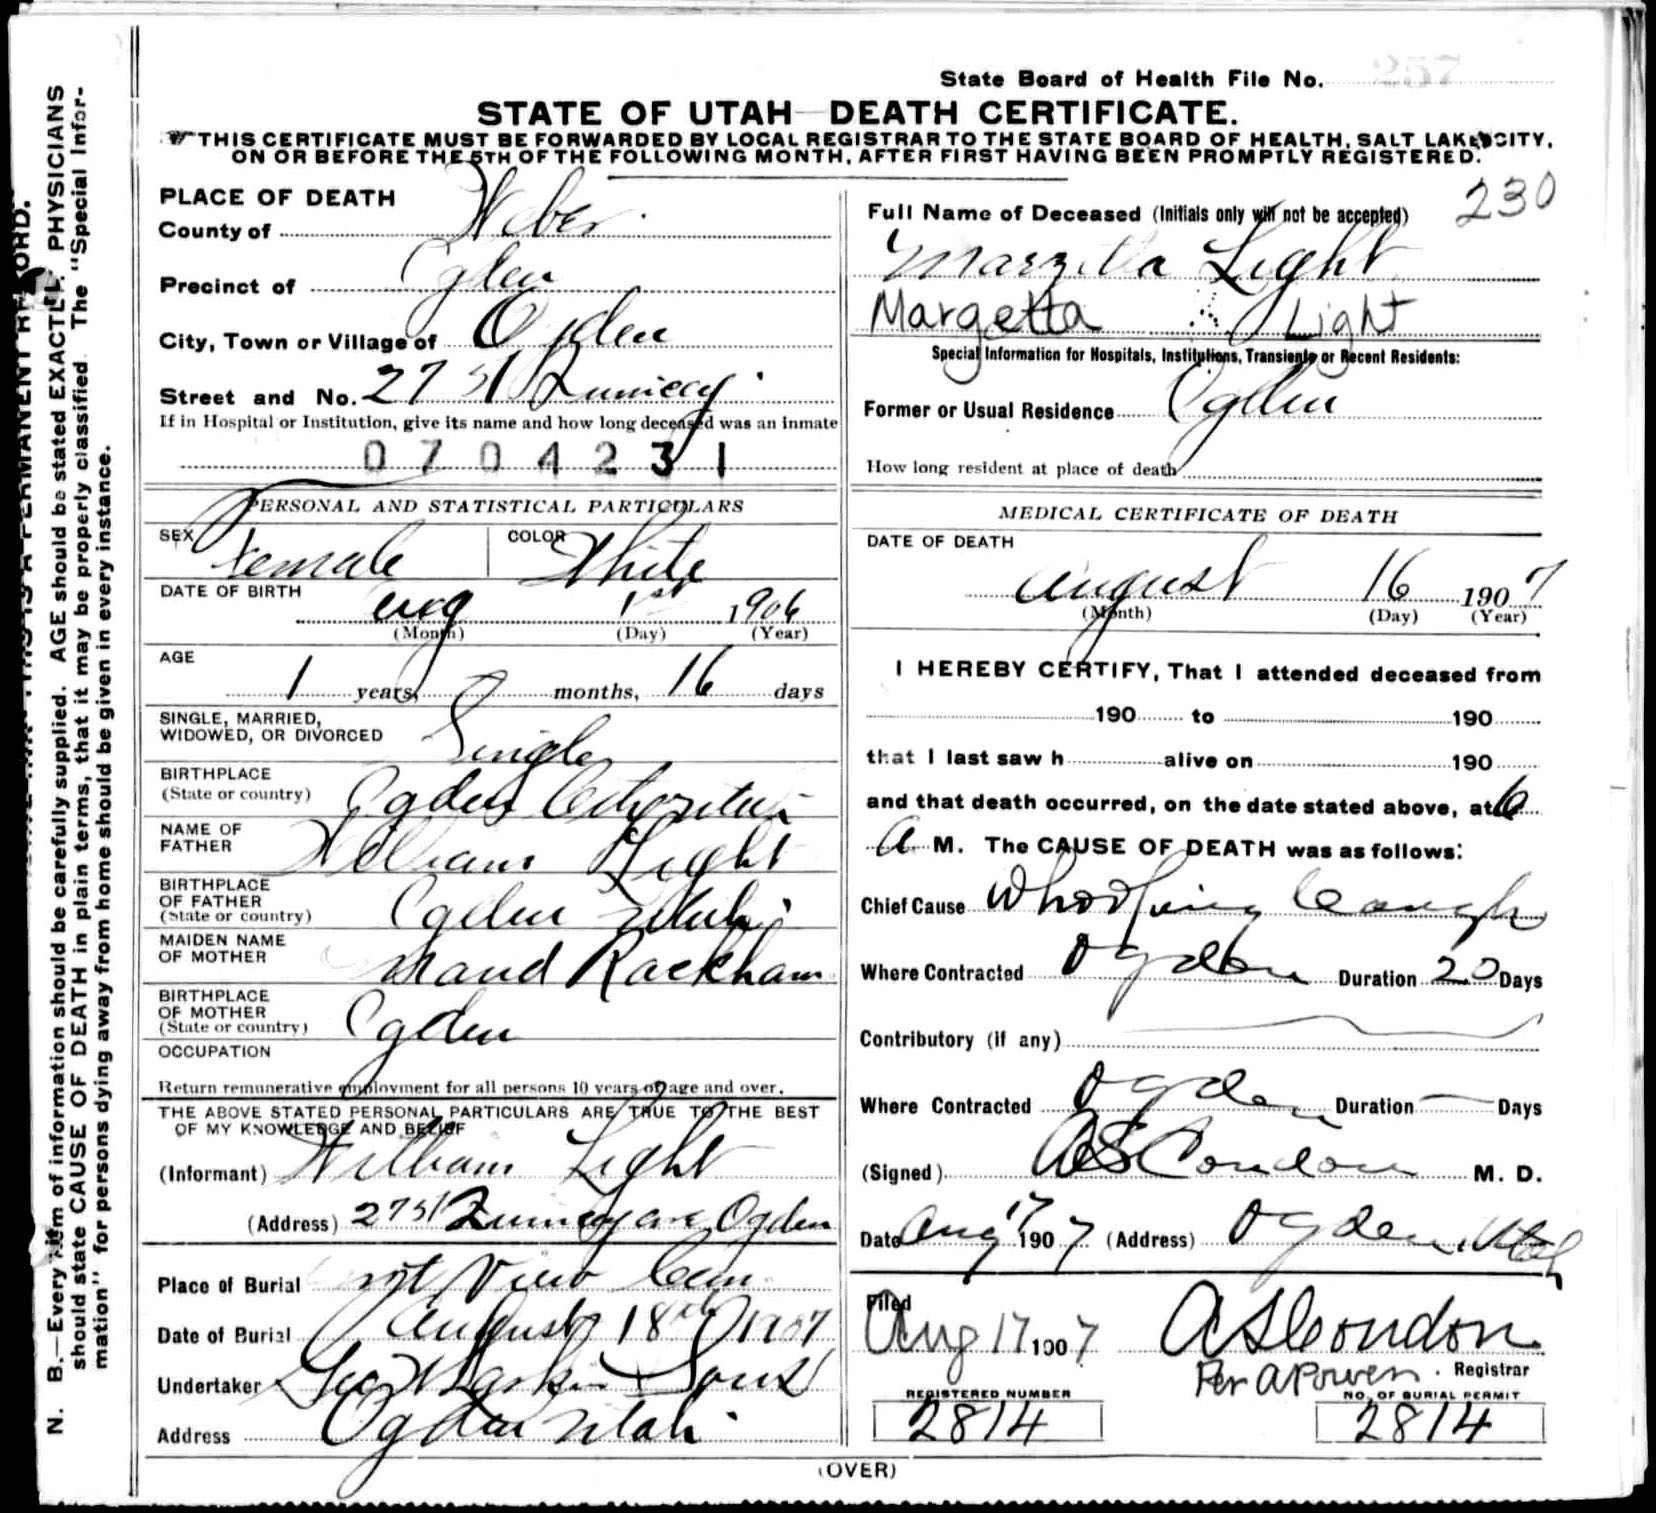 State Board of Health File No. 257
STATE OF UTAH—DEATH CERTIFICATE.
THIS CERTIFICATE MUST BE FORWARDED BY LOCAL REGISTRAR TO THE STATE BOARD OF HEALTH, SALT LAKE CITY,
ON OR BEFORE THE 5TH OF THE FOLLOWING MONTH, AFTER FIRST HAVING BEEN PROMPTLY REGISTERED.
PLACE OF DEATH
County of Weber
Precinct of Ogden
City, Town or Village of Ogden
Street and No. 2751
If in Hospital or Institution, give its name and how long deceased was an inmate
0704231
PERSONAL AND STATISTICAL PARTICULARS
SEX Female COLOR White
DATE OF BIRTH
Aug 1st 1906
(Month) (Day) (Year)
AGE
1 years, months, 16 days
SINGLE, MARRIED,
WIDOWED, OR DIVORCED Single
BIRTHPLACE
(State or country) Ogden
NAME OF
FATHER William Light
BIRTHPLACE
OF FATHER
(State or country) Ogden Utah
MAIDEN NAME
OF MOTHER Maud Rackham
BIRTHPLACE
OF MOTHER
(State or country) Ogden
OCCUPATION
Return remunerative employment for all persons 10 years of age and over.
THE ABOVE STATED PERSONAL PARTICULARS ARE TRUE TO THE BEST
OF MY KNOWLEDGE AND BELIEF
(Informant) William Light
(Address) 2751 ave Ogden
Place of Burial mt View Cem
Date of Burial August 18th 1907
Undertaker Geo W Larkin & Sons
Address Ogden Utah
230
Full Name of Deceased (Initials only will not be accepted)
Marzetta Light
Margetta Light
Special Information for Hospitals, Institutions, Transients or Recent Residents:
Former or Usual Residence Ogden
How long resident at place of death
MEDICAL CERTIFICATE OF DEATH
DATE OF DEATH
August 16 1907
(Month) (Day) (Year)
I HEREBY CERTIFY, That I attended deceased from
190 to 190
that I last saw h alive on 190
and that death occurred, on the date stated above, at 6
A M. The CAUSE OF DEATH was as follows:
Chief Cause Whooping Cough
Where Contracted Ogden Duration 20 Days
Contributory (if any)
Where Contracted Ogden Duration — Days
(Signed) AS Condon M. D.
Date Aug 17 1907 (Address) Ogden, Utah
Filed
Aug 17 1907 AS Condon
Per A Powers. Registrar
REGISTERED NUMBER NO. OF BURIAL PERMIT
2814 2814
(OVER)
N. B.—Every item of information should be carefully supplied. AGE should be stated EXACTLY. PHYSICIANS
should state CAUSE OF DEATH in plain terms, that it may be properly classified. The "Special Infor-
mation" for persons dying away from home should be given in every instance.